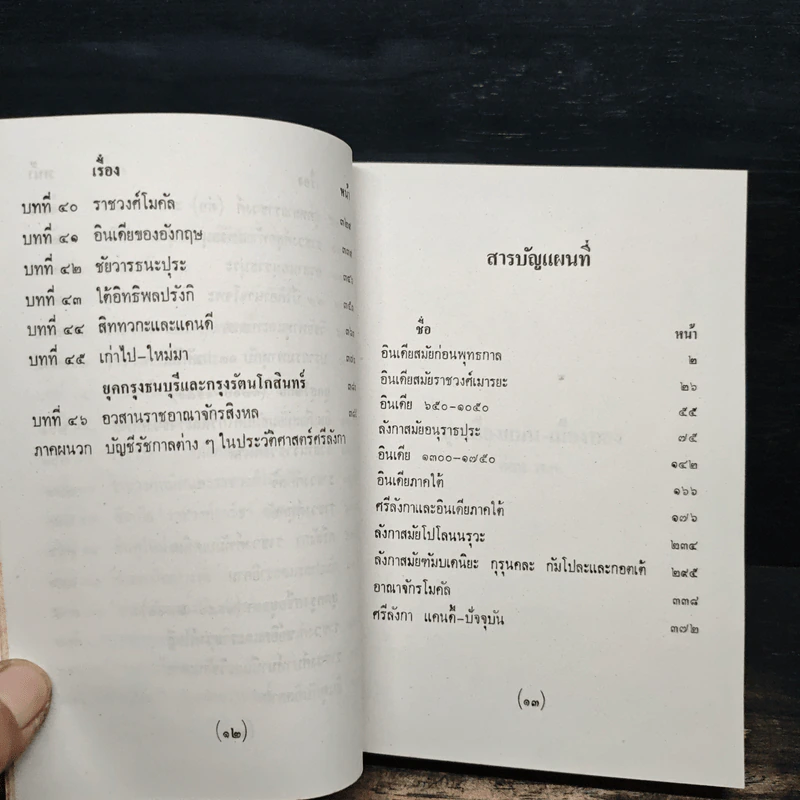 เรื่อง
หน้า
บทที่ ๔๐ ราชวงศ์โมคัล
บทที่ ๔๑ อินเดียของอังกฤษ
บทที่ ๔๒ ชัยวารธนะปุระ
บทที่ ๔๓ ใต้อิทธิพลปรังกิ
บทที่ ๔๔ สิททวกะและแคนดี
บทที่ ๔๕ เก่าไป-ใหม่มา
ยุคกรุงธนบุรีและกรุงรัตนโกสินทร์
บทที่ ๔๖ อวสานราชอาณาจักรสิงหล
ภาคผนวก บัญชีรัชกาลต่าง ๆ ในประวัติศาสตร์ศรีลังกา
(๑๒)
สารบัญแผนที่
ชื่อ หน้า
อินเดียสมัยก่อนพุทธกาล ๒
อินเดียสมัยราชวงศ์เมารยะ ๒๖
อินเดีย ๖๕๐-๑๐๕๐ ๕๕
ลังกาสมัยอนุราธปุระ ๗๕
อินเดีย ๑๓๐๐-๑๗๕๐ ๑๔๒
อินเดียภาคใต้ ๑๖๖
ศรีลังกาและอินเดียภาคใต้ ๑๗๖
ลังกาสมัยโปโลนนรุวะ ๒๓๔
ลังกาสมัยฑัมบเดนิยะ กุรุนคละ กัมโปละและกอตเต้ ๒๙๕
อาณาจักรโมคัล ๓๓๘
ศรีลังกา แคนดี้-ปัจจุบัน ๓๗๒
(๑๓)